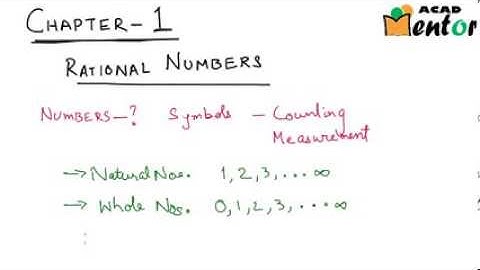 CHAPTER-1
ACAD
Mentor
RATIONAL NUMBERS
NUMBERS-? Symbols - Counting
Measurement
→ Natural Nos. 1, 2, 3, ... ∞
→ Whole Nos. 0, 1, 2, 3, ... ∞